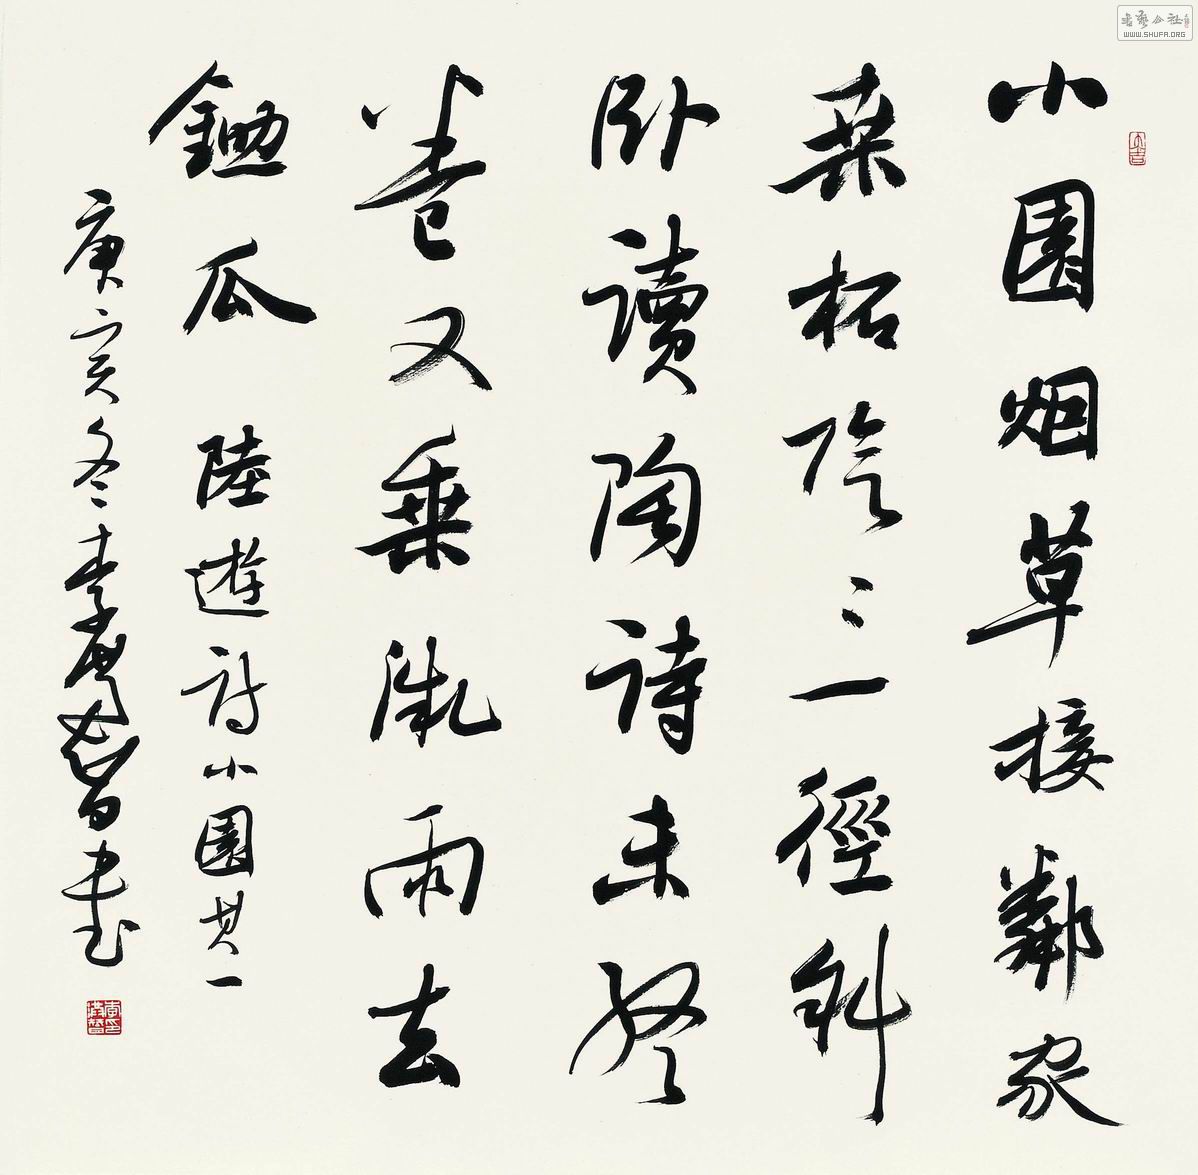 小園烟草接鄰家
桑柘陰々一徑斜
卧讀陶詩未終
卷又乘微雨去
鋤瓜 陸遊詩小園其一
庚寅冬李書
大吉
書藝公社
WWW.SHUFA.ORG